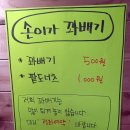 손이가 꽈배기
* 꽈배기 500원
* 팥도너츠 1,000원
저희 꽈배기는
많이 튀겨 놓지 않습니다